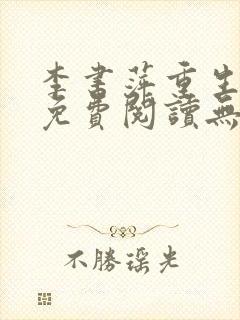 李書萍重生
免費閱讀無
不勝謡光